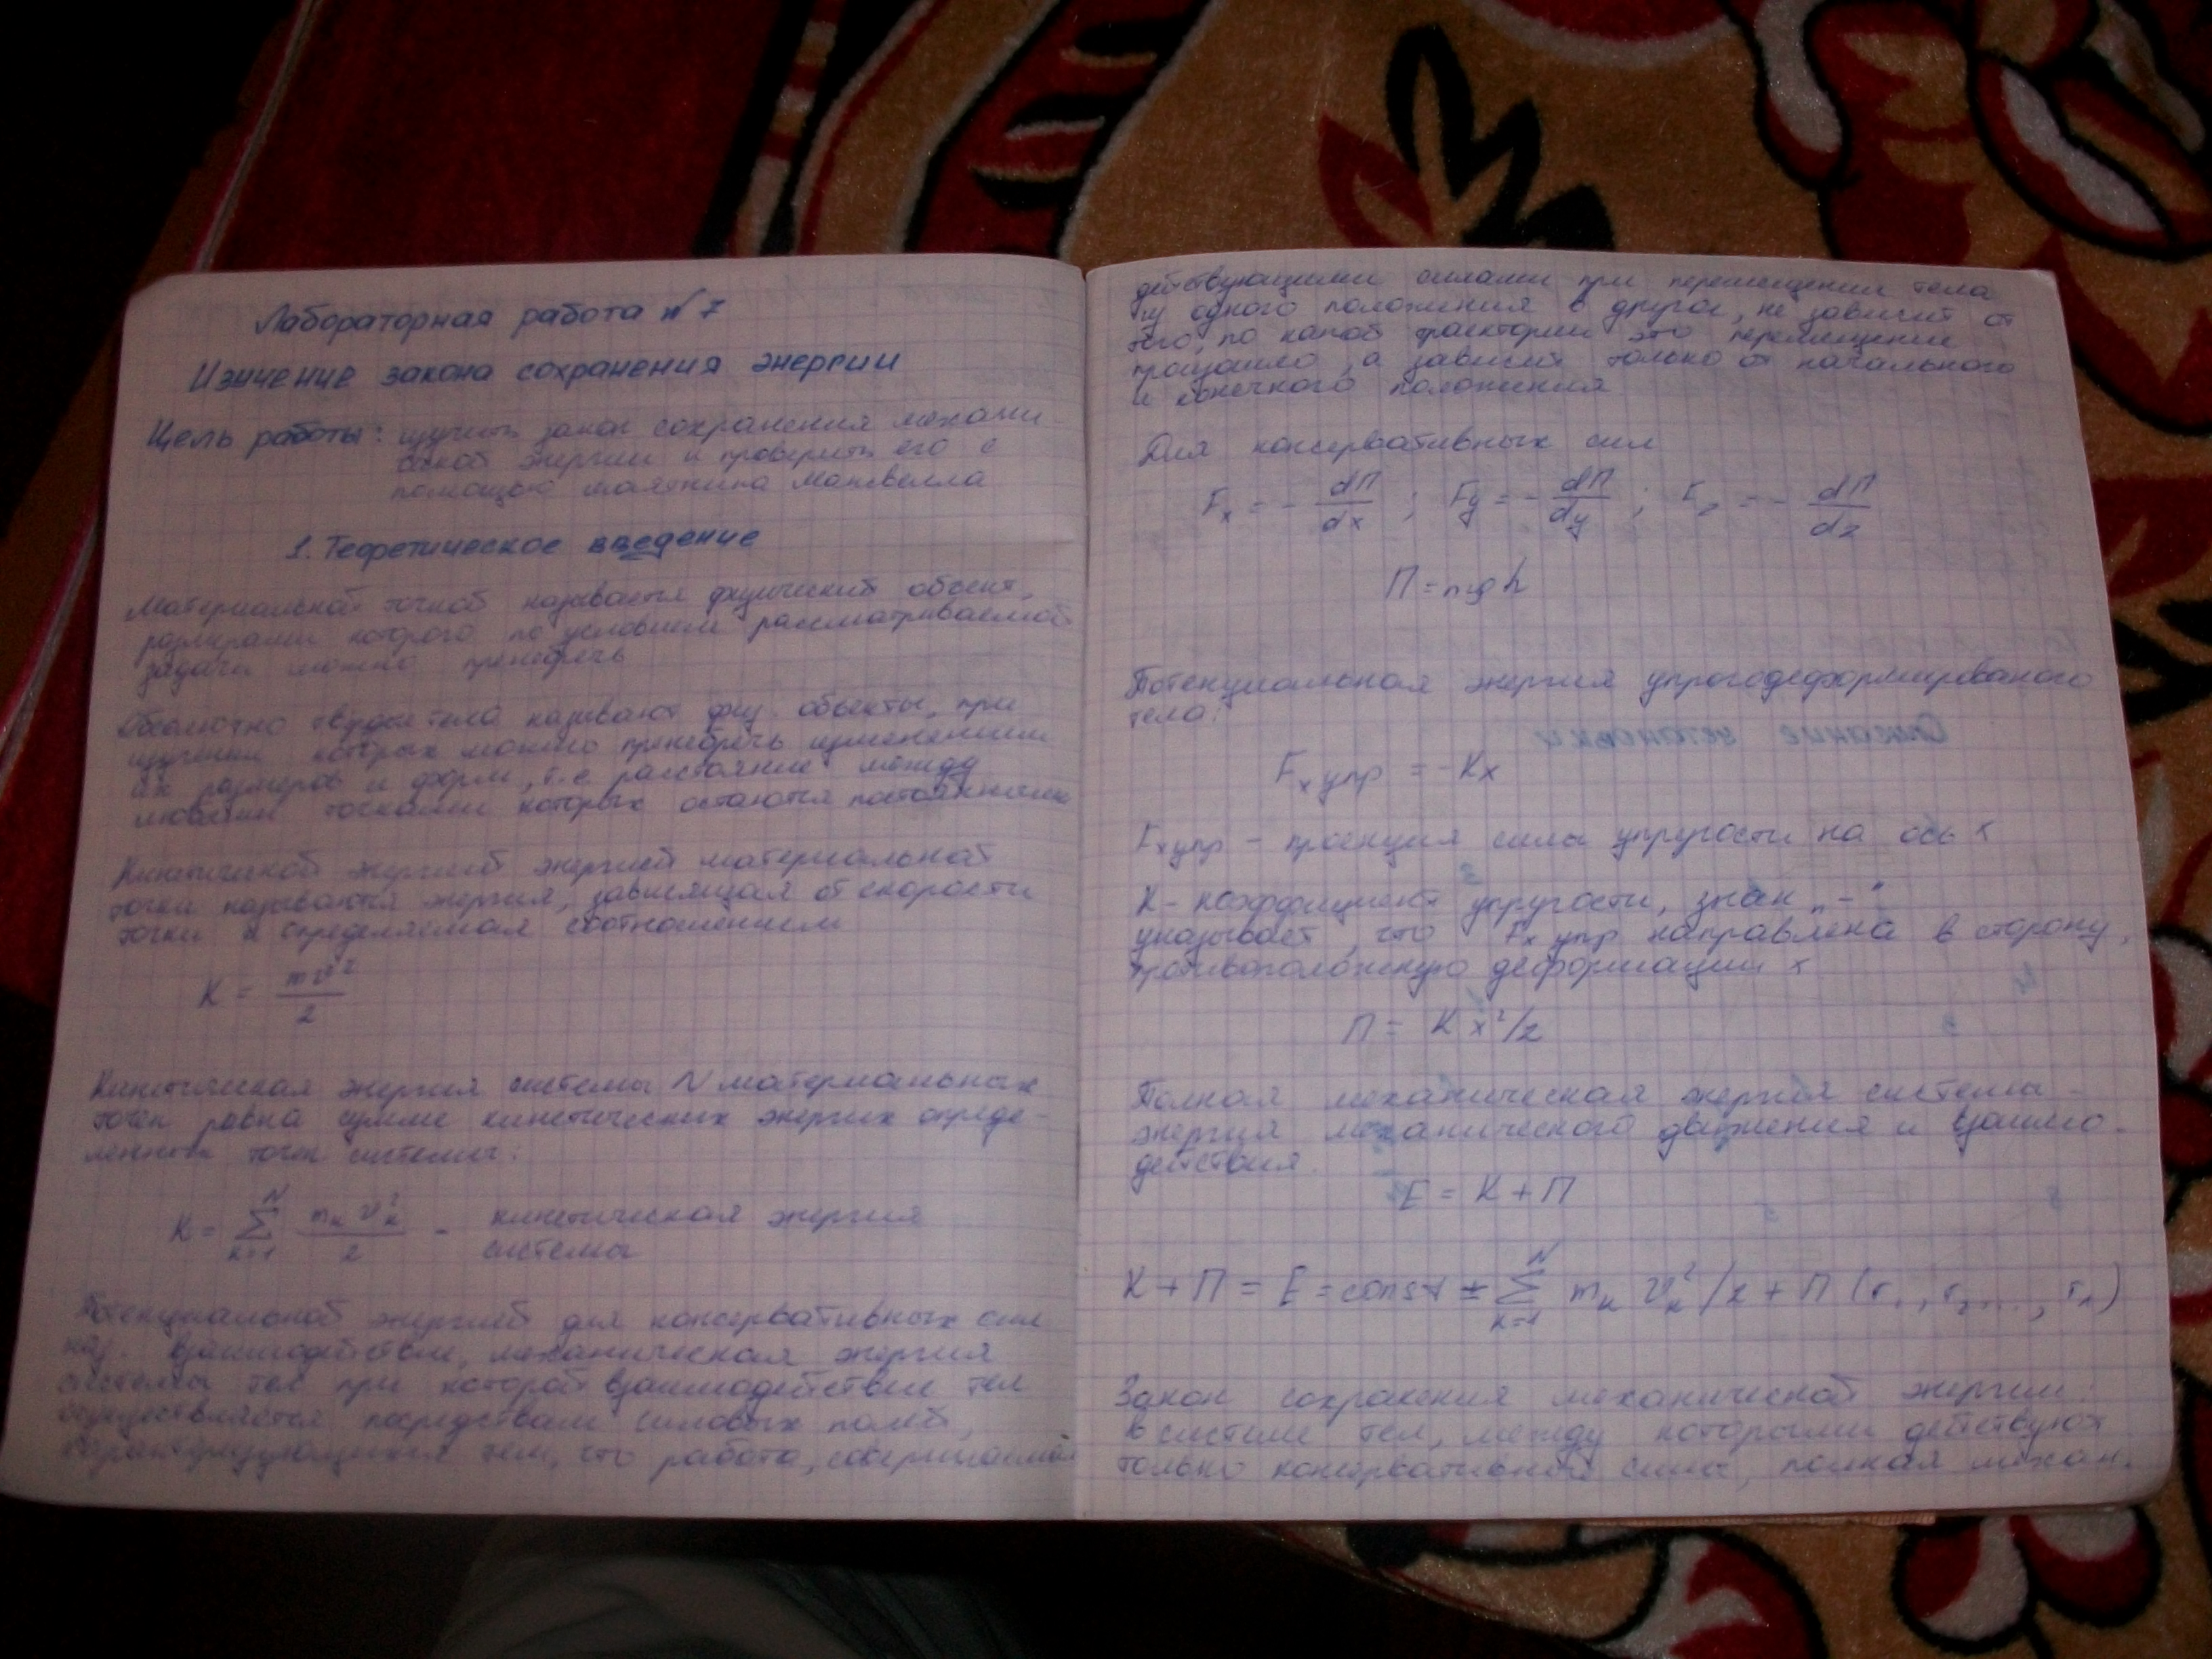 Лабораторная работа №7
Изучение закона сохранения энергии
Цель работы: изучить закон сохранения механи-
ческой энергии и проверить его с
помощью маятника Максвелла
1. Теоретическое введение
Материальной точкой называется физический объект,
размерами которого по условиям рассматриваемой
задачи можно пренебречь
Абсолютно твёрдые тела называют физ. объекты, при
изучении которых можно пренебречь изменениями
их размеров и форм, т.е. расстояние между
любыми точками которых остаются постоянными
Кинетической энергией энергией материальной
точки называются энергия, зависящая от скорости
точки и определяемая соотношением
K = mv²/2
Кинетическая энергия системы N материальных
точек равна сумме кинетических энергих опреде-
ленных точек системы:
K = Σ_{k=1}^{N} m_k v_k²/2 - кинетическая энергия
системы
Потенциальной энергией для консервативных сил
наз. взаимодействие, механическая энергия
системы тел при которой взаимодействие тел
осуществляется посредствам силовых полей,
характеризующихся тем, что работа, совершаемая
действующими силами при перемещении тела
из одного положения в другое, не зависит от
того, по какой траектории это перемещение
произошло, а зависит только от начального
и конечного положения
Для консервативных сил
F_x = - dП/dx ; F_y = - dП/dy ; F_z = - dП/dz
П = mgh
Потенциальная энергия упругодеформированого
тела:
F_x упр = -Kx
F_x упр - проекция силы упругости на ось x
K - коэффициент упругости, знак „-“
указывает, что F_x упр направлена в сторону,
противоположную деформации x
П = Kx²/2
Полная механическая энергия системы -
энергия механического движения и взаимо-
действия.
E = K + П
K + П = E = const = Σ_{k=1}^{N} m_k v_k²/2 + П (r₁, r₂..., r_n)
Закон сохранения механической энергии:
в системе тел, между которыми действуют
только консервативной силы, полная механ.